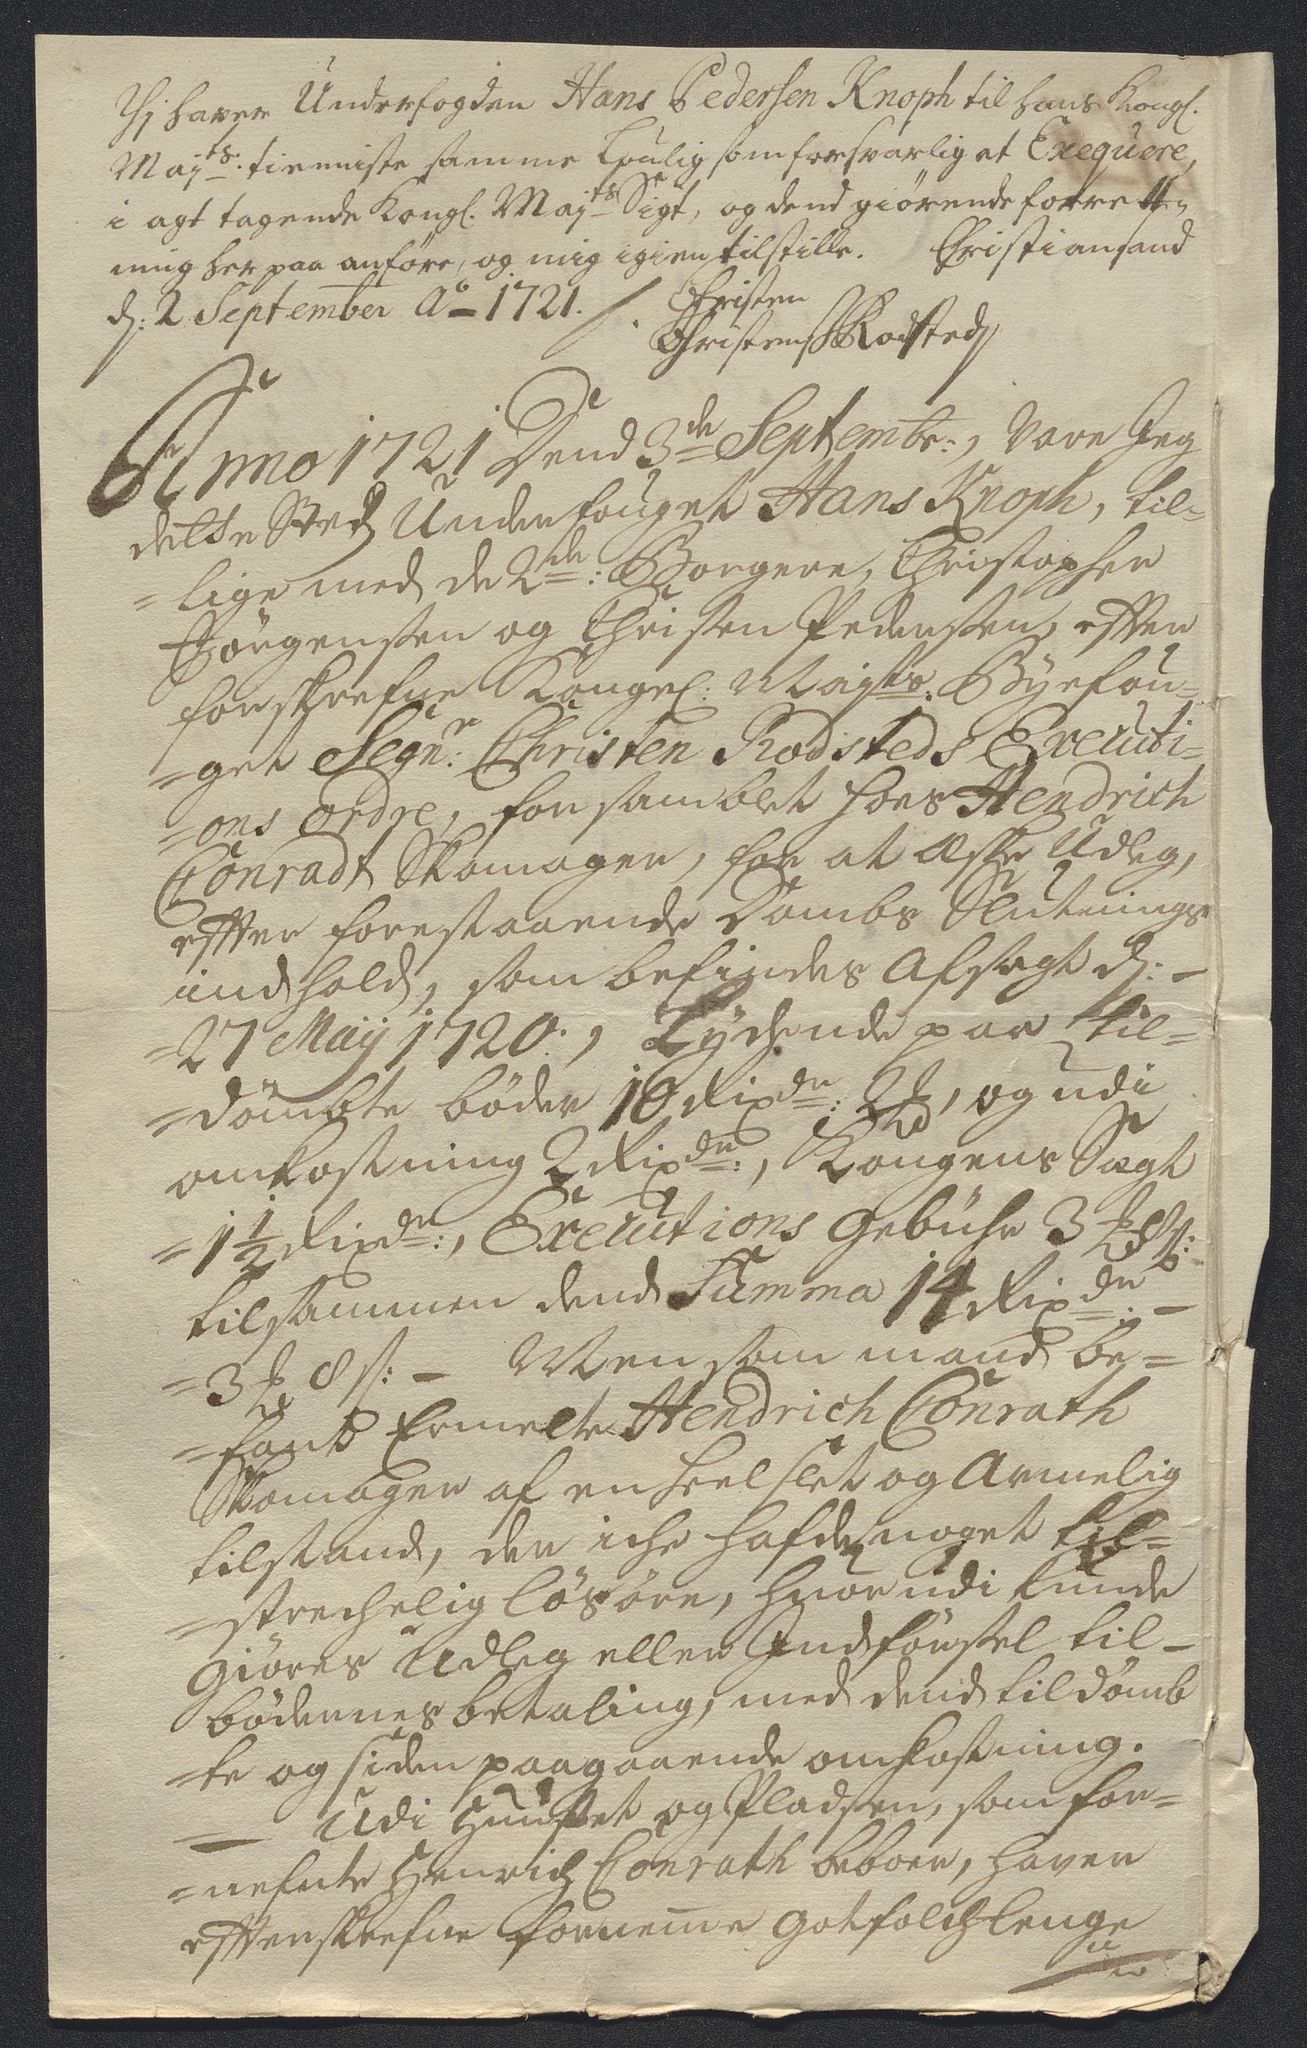 Thj haver Underfogden Hans Pedersen Knoph til hans Kongl.
Majts: tienniste samme Loulig som forsvarlig at Exequere,
i agt tagende Kongl. Majts Sigt, og dend giørende forrett-
ning her paa anføre, og mig igien tilstille. Christiansand
d: 2 September Ao 1721. /. Christen
Christens Rodsted
Anno 1721 Dend 3de Septembr:, Vare Jeg
dette Sted Underfouget Hans Knoph, til-
-lige med de 2de: Borgere, Christopher
Jörgensen og Christen Pedersen, effter
forskrefne Kongel: Mayts. Byefou-
-get Segnr: Christen Rodsteds Executi-
-ons ordre, forsamblet hoes Hendrich
Conradt Skomager, for at Æske Udleg,
effter forestaaende Dombs Slutnings
indhold, som befindes Afsagt d: -
-27 Maij 1720., Lydende paa til-
-dömbte bøder 10 Rixdr: 2 , og udi
omkostning 2 Rixdr:, Kongens Sagt
-1 1/2 Rixdr:, Executions Gebühr 3 8 s:
tilsammen dend Summa 14 Rixdr: -
-3 8 s: - Men som mand be-
-fandt Ermelte Hendrich Conrath
Skomager af en heel slet og Armelig
tilstand, der iche hafde noget til-
-strechelig løsøre, hvor udi kunde
Giøres Udleg eller Indførsel til-
bødernes betaling, med dend tildömb
-te og siden paagaaende omkostning.
- Udi Huuset og Pladsen, som for-
-nefnte Henrich Conrath beboer, haver
effterskrefne fornemme Gotfolch lenge